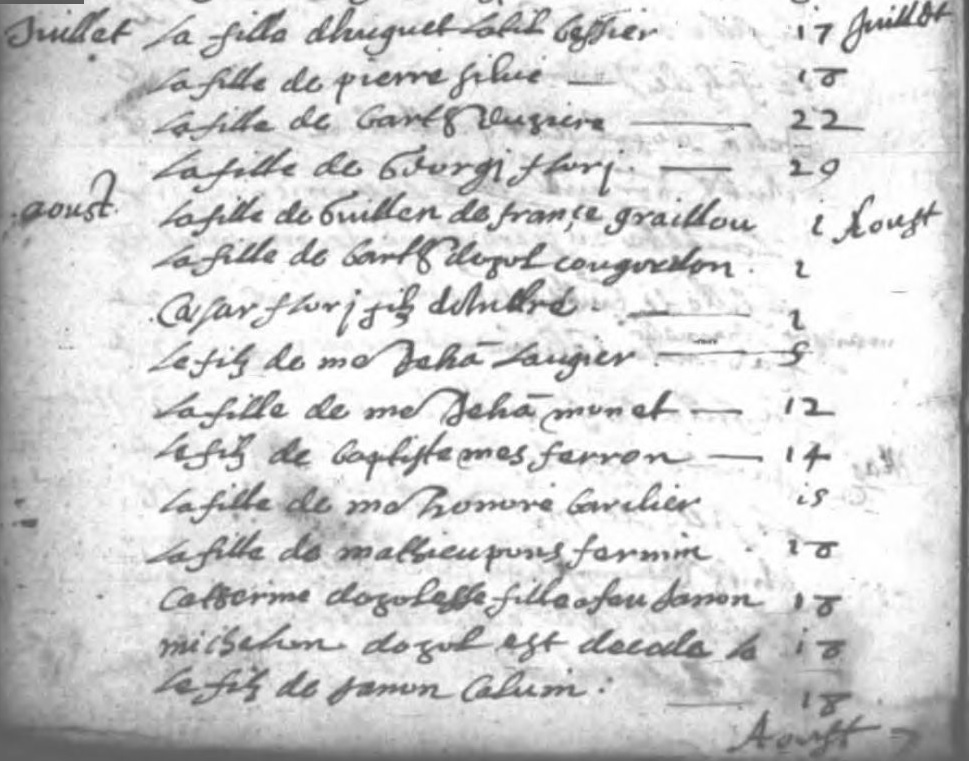 Juillet La fille dhuguet Latil bessier 17 Juillet
La fille de pierre silvi — 18
La fille de barth 22
La fille de George flori. — 29
aoust. La fille de Guillen de françe graillou 2 Aoust
La fille de barth dozol cougourdon. 2
Cesar flori filz — 2
Le filz de me Jehā Laugier — 5
La fille de me Jehā monet — 12
Le filz de baptiste mes ferron — 14
La fille de me honore barilier 15
La fille de mathieu pons fermin 18
Catherine dozolesse fille a feu Janon 18
michelon dozol est decede le 18
Le filz de Janon Caluin. — 18
Aoust